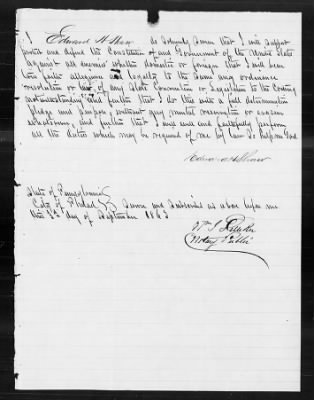 I Edward H. Shaw do solemnly swear that I will support
protect and defend the Constitution and Government of the United States
against all enemies whether domestic or foreign that I will bear
true faith allegiance and loyalty to the same any ordinance
resolution or law of any State Convention or Legislation to the contrary
notwithstanding and further that I do this with a full determination
pledge and purpose without any mental reservation or evasion
whatsoever and further that I will well and faithfully perform
all the duties which may be required of me by law So help me God
Edward H Shaw
State of Pennsylvania
City of Philad Sworn and Subscribed as above before me
this day of September 1863
Wm
Notary Public